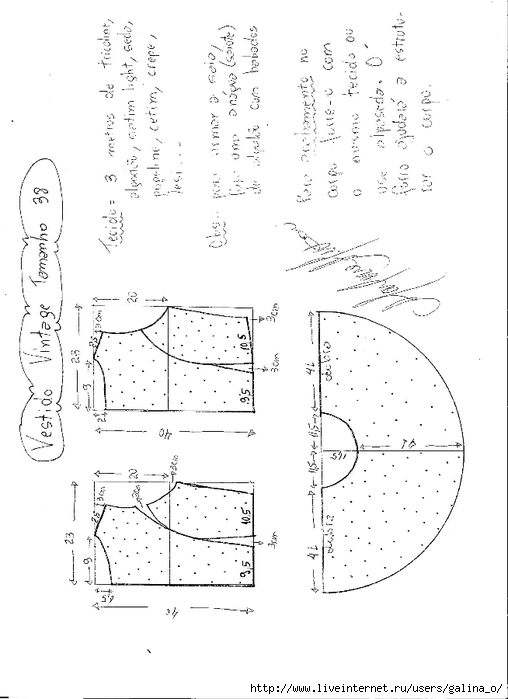 Vestido Vintage Tamanho 38
Tecido = 3 metros de tricoline,
algodão, cetim light, seda,
popeline, cetim, crepe,
Obs... para armar a saia,
faça uma anágua (saiote)
de algodão com babados
Para acabamento no
corpo forre-o com
o mesmo tecido ou
use alpaseda. O
forro ajudará a estrutu-
rar o corpo.
23
9
7,5
3cm
20
2
40
10,5
9,5
3cm
3cm
23
9
7,5
3cm
20
3cm
4,5
40
10,5
9,5
3cm
71
dobra
11,5
11,5
11,5
71
dobra
71
http://www.liveinternet.ru/users/galina_o/